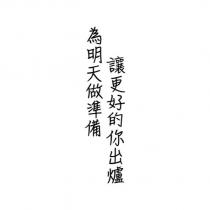 為明天做準備
讓更好的你出爐